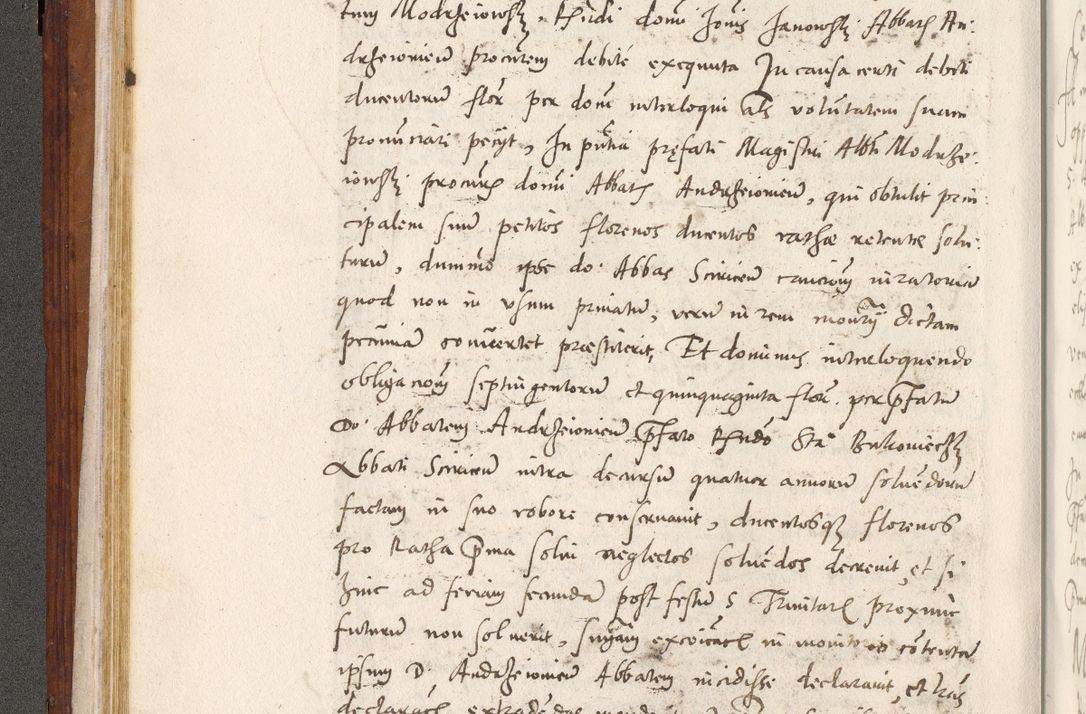 tum Modrzeiowsky, Rndi domi Jonis Janowsky Abbatis An:
drzeioviem procurem debite exequuta In causa certi debiti
ducentorum flor per dom interloqui als voluntatem suam
pronunciari petyt, In pntia prefati Magistri Alb͠ti Modrze:
iowsky procuris domi Abbatis Andrzeiovien, qui obtulit prin:
cipalem suum petitos florenos ducentos rathae retentae solu:
turum, dummo ipse do: Abbas Sciricen caucionem iuratoriam
quod non in usum privatum, verum in rem monrij dictam
pecuniam converteret praestiterit, Et dominus interloquendo
obliganom septingentorum et quinquaginta flor. per pfatum
Do: Abbatem Andrzeiovien pfato Rndo Sta: Bukowiechsky
Abbati Sciricen intra decursum quatuor annorum solvendorum
factam in suo robore conservavit, ducentosque florenos
pro Ratha pma solui neglectos solvendos decrevit, et si
hinc ad feriam secundam post festum S Trinitatis proxime
futurum non solverit, sniam excoicatis in monitorio contentam
ipsum D. Andrzeiovien Abbatem incidisse declaravit, et lras